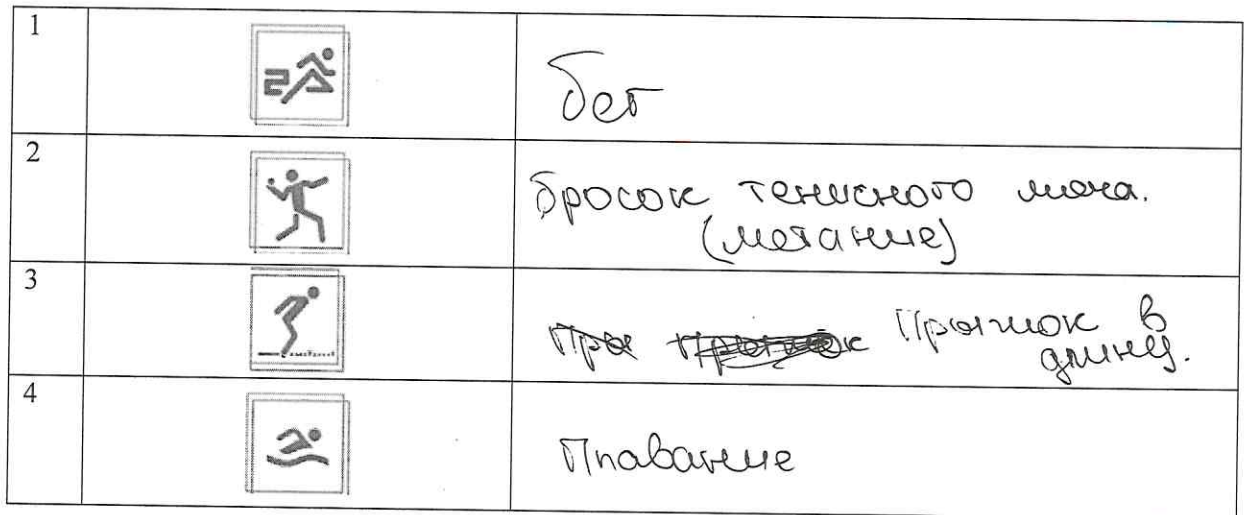 1
бег
2
бросок тенисного мяча.
(метание)
3
При прыжок Прыжок в
длину.
4
Плавание